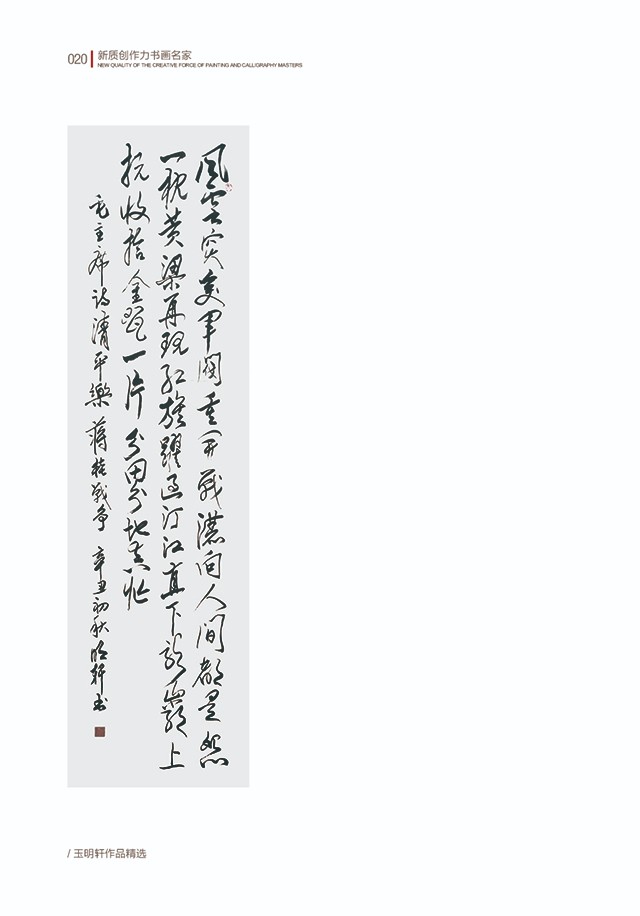 020
新质创作力书画名家
NEW QUALITY OF THE CREATIVE FORCE OF PAINTING AND CALLIGRAPHY MASTERS
風雲突变軍閥重开战灑向人间都是怨
一枕黄粱再现红旗躍过汀江直下龙巖上
杭收拾金瓯一片分田分地真忙
毛主席诗清平樂蒋桂战争 辛丑初秋明轩书
/ 玉明轩作品精选